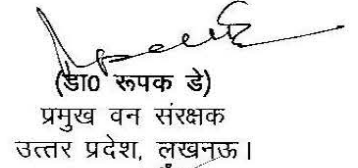 (डा0 रूपक डे)
प्रमुख वन संरक्षक
उत्तर प्रदेश, लखनऊ।